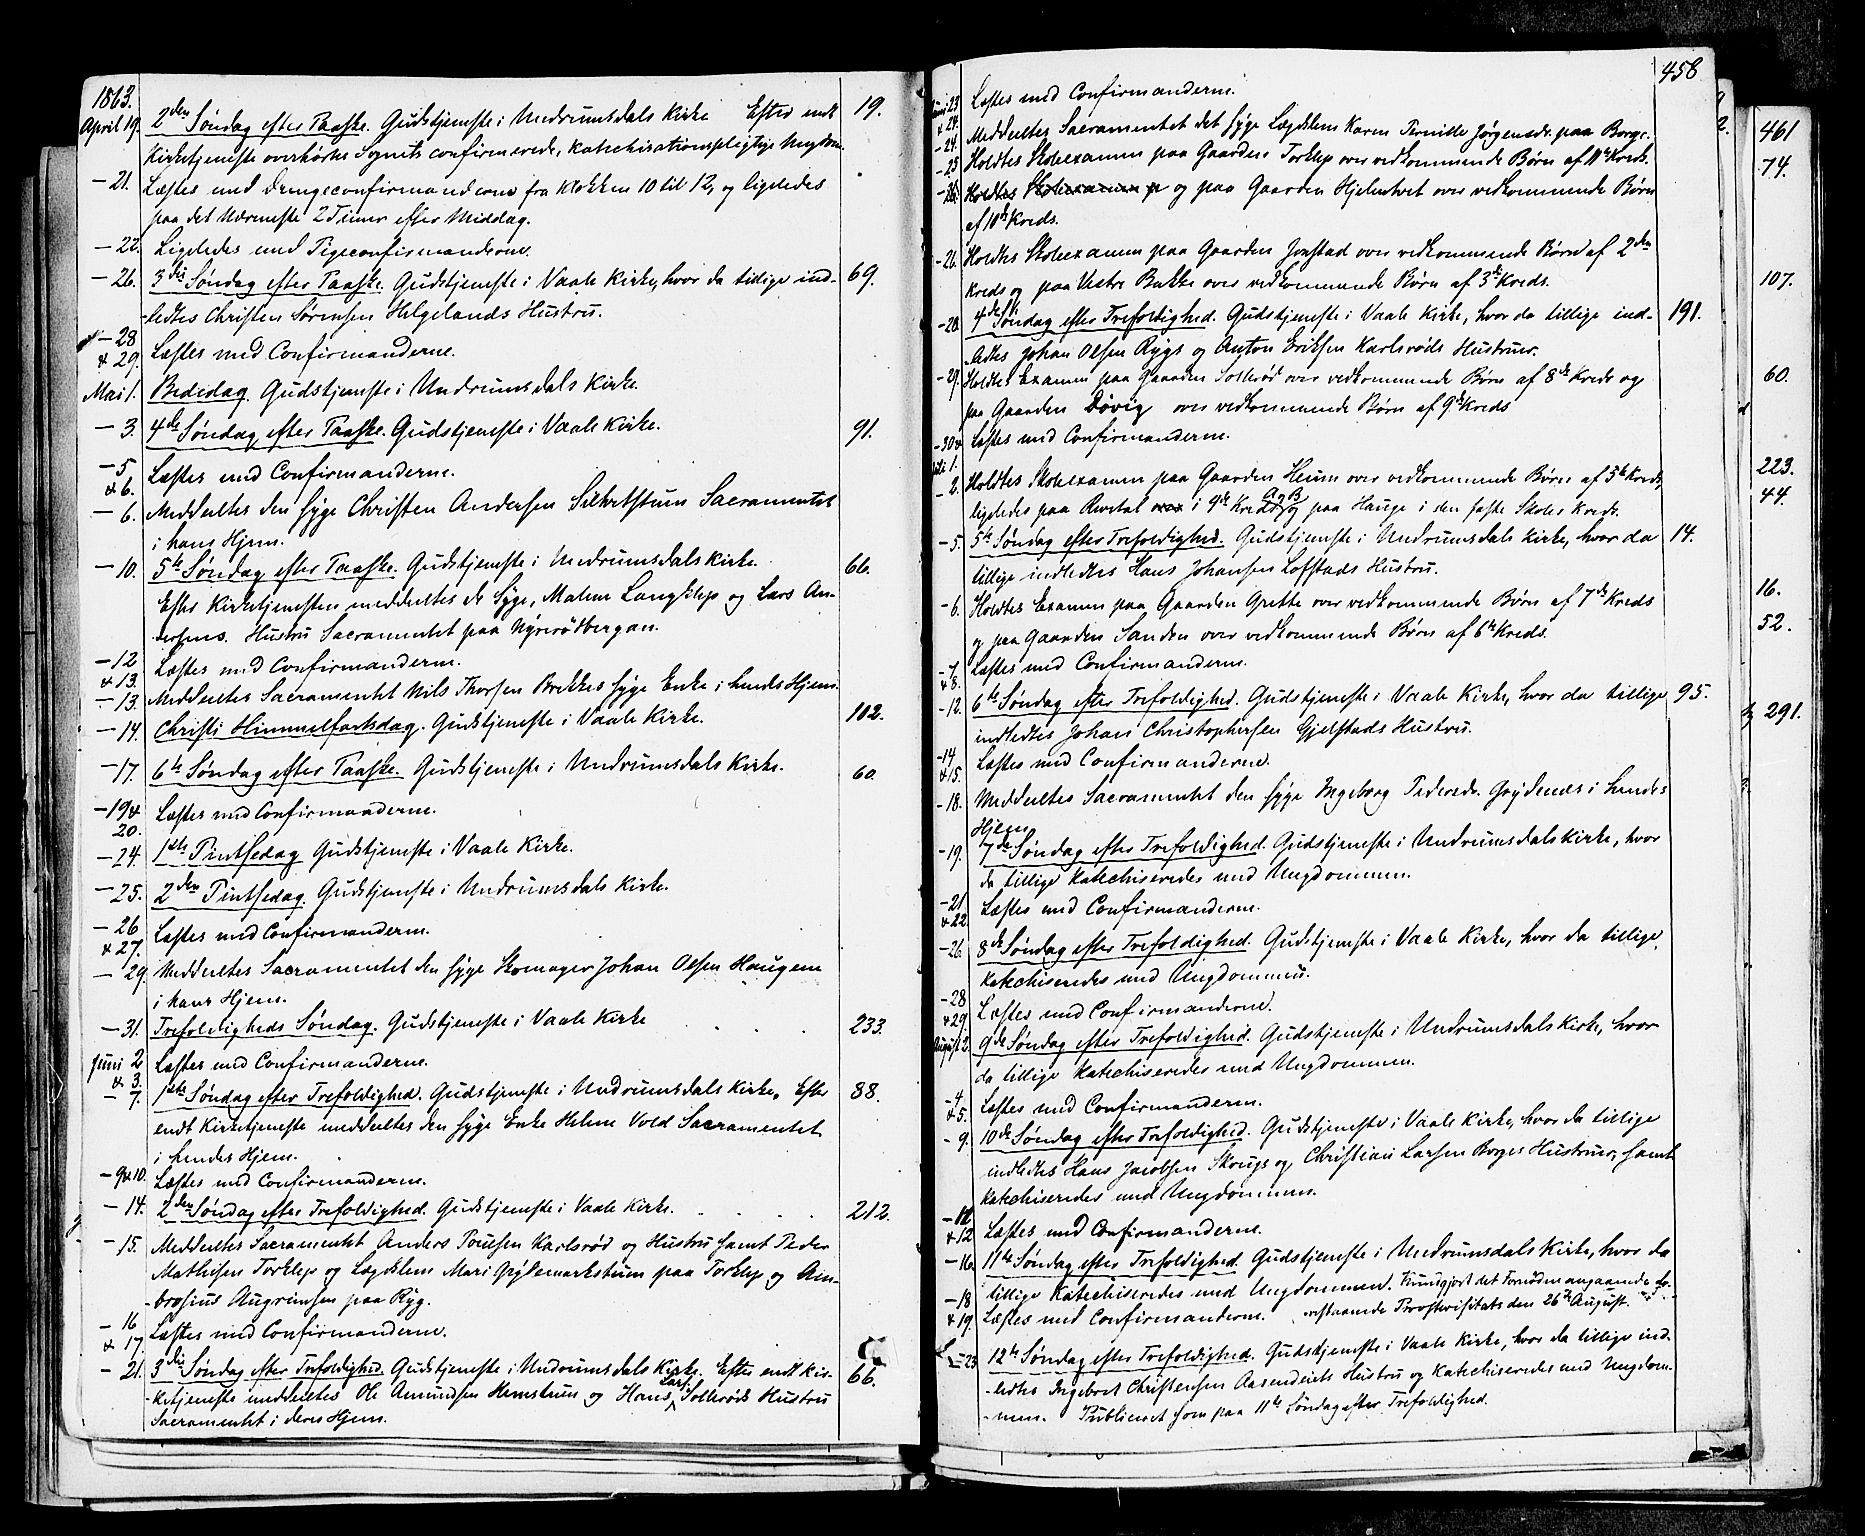 1863.
April 19. 2den Søndag efter Paaske. Gudstjeneste i Undrumsdals Kirke Efter endt 19.
Kirketjeneste overhørtes Sognets confirmerede, katechisationspligtige Ungdom.
— 21. Læstes med Drengeconfirmanderne fra Klokken 10 til 12, og ligeledes
paa det Nærmeste 2 Timer efter Middag.
— 22. Ligeledes med Pigeconfirmanderne.
— 26. 3die Søndag efter Paaske. Gudstjeneste i Vaale Kirke, hvor da tillige ind- 69.
-ledtes Christen Sørensen Helgelands Hustru.
— 28
& 29. Læstes med Confirmanderne.
Mai 1. Bededag. Gudstjeneste i Undrumsdals Kirke.
— 3. 4de Søndag efter Paaske. Gudstjeneste i Vaale Kirke. 91.
— 5
& 6. Læstes med Confirmanderne.
— 6. Meddeeltes den syge Christen Andersen Sacramentet
i hans Hjem.
— 10. 5te Søndag efter Paaske. Gudstjeneste i Undrumsdals Kirke. 66.
Efter Kirketjenesten meddeeltes de Syge, Malene Langklep og Lars An-
-dersens Hustru Sacramentet paa
— 12
& 13. Læstes med Confirmanderne.
— 13. Meddeeltes Sacramentet Nils Thorsen Brekkes syge Enke i hendes Hjem.
— 14. Christi Himmelfartsdag. Gudstjeneste i Vaale Kirke. 102.
— 17. 6te Søndag efter Paaske. Gudstjeneste i Undrumsdals Kirke. 60.
— 19 &
20. Læstes med Confirmanderne.
— 24. 1ste Pintsedag Gudstjeneste i Vaale Kirke.
— 25. 2den Pintsedag. Gudstjeneste i Undrumsdals Kirke.
— 26
& 27. Læstes med Confirmanderne.
— 29. Meddeeltes Sacramentet den syge Skomager Johan Olsen Haugene
i hans Hjem.
— 31. Trefoldigheds Søndag. Gudstjeneste i Vaale Kirke 233.
Juni 2
& 3. Læstes med Confirmanderne.
— 7. 1ste Søndag efter Trefoldighed. Gudstjeneste i Undrumsdals Kirke. Efter 88.
endt Kirketjeneste meddeeltes den syge Enke Helene Vold Sacramentet
i hendes Hjem.
— 9 & 10. Læstes med Confirmanderne.
— 14. 2den Søndag efter Trefoldighed. Gudstjeneste i Vaale Kirke. 212.
— 15. Meddeeltes Sacramentet Anders Poulsen Karlsrød og Hustru samt Peder
Mathisen Torklep og Lægdslem Mari paa Torklep og Am-
-brosius Augrimsen paa Ryg.
— 16
& 17. Læstes med Confirmanderne.
— 21. 3die Søndag efter Trefoldighed. Gudstjeneste i Undrumsdals Kirke. Efter endt Kir- 66.
-ketjeneste meddeeltes Ole Amundsen og Hans Lars. Sollerøds Hustru
Sacramentet i deres Hjem.
458
Juni 23
& 24. Læstes med Confirmanderne.
— 24. Meddeeltes Sacramentet det syge Lægdslem Karen Pernille Jørgensdr. paa Borge.
— 25 Holdtes Skoleexamen paa Gaarden Torklep over vedkommende Børn af 11te Kreds.
— 26. Holdtes Skoleexamen p og paa Gaarden Hjelmtvet over vedkommende Børn
af 10de Kreds.
— 26. Holdtes Skoleexamen paa Gaarden Jonstad over vedkommende Børn af 2den
Kreds og paa Vestre Bakke over vedkommende Børn af 3die Kreds.
— 28. 4de Søndag efter Trefoldighed. Gudstjeneste i Vaale Kirke, hvor da tillige ind- 191.
-ledtes Johan Olsen Rygs og Anton Eriksen Karlsrøds Hustruer.
— 29. Holdtes Examen paa Gaarden Sollerød over vedkommende Børn af 8de Kreds og
paa Gaarden Døvig over vedkommende Børn af 9de Kreds
— 30 &
Juli 1. Læstes med Confirmanderne.
— 2. Holdtes Skoleexamen paa Gaarden Heum over vedkommende Børn af 5te Kreds,
ligeledes paa Revetal i 9de Kreds og paa Hauge i den faste Skoles Kreds.
— 5. 5te Søndag efter Trefoldighed. Gudstjeneste i Undrumsdals Kirke, hvor da 14.
tillige indledtes Hans Johansen Lofstads Hustru.
— 6. Holdtes Examen paa Gaarden Grette over vedkommende Børn af 7de Kreds
og paa Gaarden Sanden over vedkommende Børn af 6te Kreds.
— 7
& 8. Læstes med Confirmanderne.
— 12. 6te Søndag efter Trefoldighed. Gudstjeneste i Vaale Kirke, hvor da tillige 95.
indledtes Johan Christophersen Gjelstads Hustru.
— 14
& 15. Læstes med Confirmanderne.
— 18. Meddeeltes Sacramentet den syge Ingeborg Pedersdr. i hendes
Hjem.
— 19. 7de Søndag efter Trefoldighed. Gudstjeneste i Undrumsdals Kirke, hvor
da tillige katechiseredes med Ungdommen.
— 21
& 22 Læstes med Confirmanderne.
— 26. 8de Søndag efter Trefoldighed. Gudstjeneste i Vaale Kirke, hvor da tillige
katechiseredes med Ungdommen.
— 28
& 29. Læstes med Confirmanderne.
August 2. 9de Søndag efter Trefoldighed. Gudstjeneste i Undrumsdals Kirke, hvor
da tillige katechiseredes med Ungdommen.
— 4
& 5. Læstes med Confirmanderne.
— 9. 10de Søndag efter Trefoldighed. Gudstjeneste i Vaale Kirke, hvor da tillige
indledtes Hans Jacobsen Skougs og Christian Larsen Borges Hustruer, samt
katechiseredes med Ungdommen.
— 11
& 12 Læstes med Confirmanderne.
— 16. 11te Søndag efter Trefoldighed. Gudstjeneste i Undrumsdals Kirke, hvor da
tillige katechiseredes med Ungdommen. Kundgjort det Fornødne angaaende fo-
— 18
& 19. Læstes med Confirmanderne. -restaaende Provstevisitats den 26de August.
— 23 12te Søndag efter Trefoldighed. Gudstjeneste i Vaale Kirke, hvor da tillige ind-
-ledtes Ingebret Christensen Aasendens Hustru og katechiseredes med Ungdom-
-men. Publiceret som paa 11te Søndag efter Trefoldighed.
461
74.
107.
60.
223.
44.
16.
52.
291.